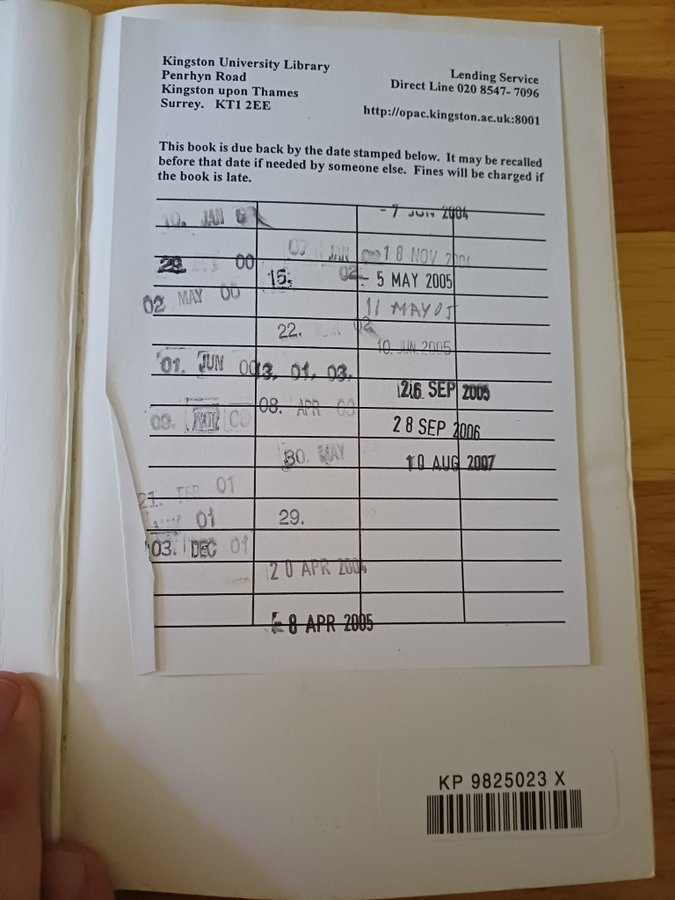 Kingston University Library
Penrhyn Road
Kingston upon Thames
Surrey. KT1 2EE
Lending Service
Direct Line 020 8547- 7096
http://opac.kingston.ac.uk:8001
This book is due back by the date stamped below. It may be recalled
before that date if needed by someone else. Fines will be charged if
the book is late.
10. JAN
00
02 MAY 00
01. JUN 00
09.
01
01
03. DEC 01
07
15. 02
22. 02
13. 01. 03.
08. APR 03
30. MAY
29.
20 APR 2004
- 8 APR 2005
- 7 JUN 2004
18 NOV 2004
- 5 MAY 2005
11 MAY 05
10 JUN 2005
26 SEP 2005
28 SEP 2006
10 AUG 2007
KP 9825023 X